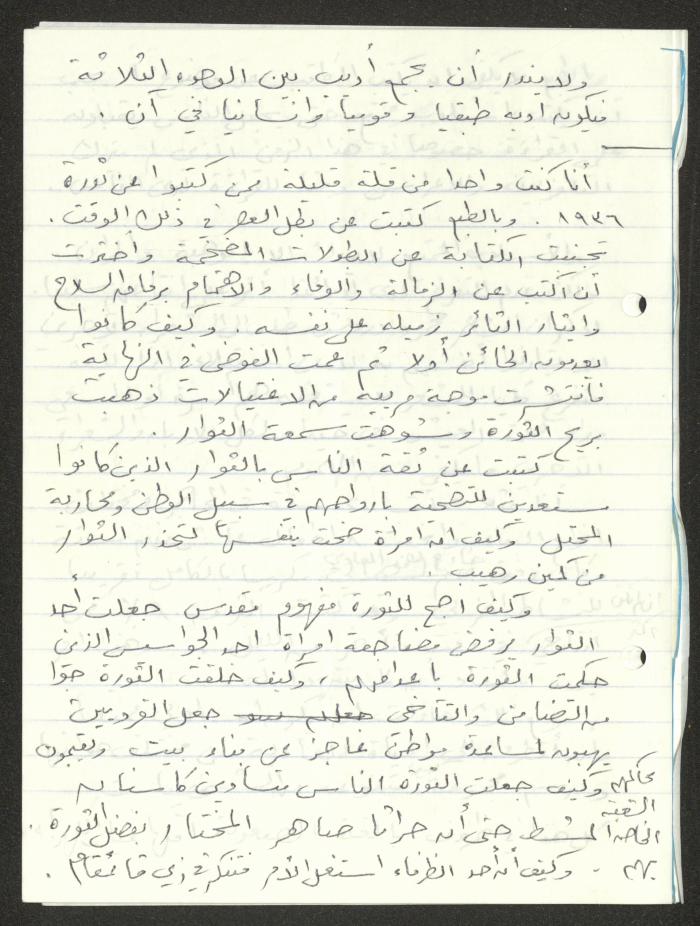 ولا يندر أن يجمع أديب بين الوجوه الثلاثة
فيكون ادبه طبقيا وقوميا وانسانيا في آن .
أنا كنت واحدا من قلة قليلة ممن كتبوا عن ثورة
١٩٣٦ . وبالطبع كتبت عن بطل العصر في ذلك الوقت .
تجنبت الكتابة عن البطولات المضخمة واخترت
أن اكتب عن الزمالة والوفاء والاهتمام برفاق السلاح
وايثار الثائر زميله على نفسه . وكيف كانوا
يعدمون الخائن أولا ثم عمت الفوضى في النهاية
فانتشرت موجة مريبة من الاغتيالات ذهبت
بريح الثورة وشوهت سمعة الثوار
كتبت عن ثقة الناس بالثوار الذين كانوا
مستعدين للتضحية بارواحهم في سبيل الوطن ومحاربة
المحتل وكيف ان امرأة ضحت بنفسها لتحذر الثوار
من كمين رهيب .
وكيف اصبح للثورة مفهوم مقدس جعلت احد
الثوار يرفض مضاجعة امرأة احد الجواسيس الذين
حكمت الثورة باعدامهم ، وكيف خلقت الثورة جوا
من التضامن والتآخي جعل القرويين
يهبون لمساعدة مواطن عاجز عن بناء بيت ويقيمون
محاكمهم وكيف جعلت الثورة الناس متساوين كاسنان
الخاصة المشط حتى أن حراثا صاهر المختار بفضل الثورة .
بهم . وكيف أن أحد الظرفاء استغل الأمر فتنكر في زي قائمقام .